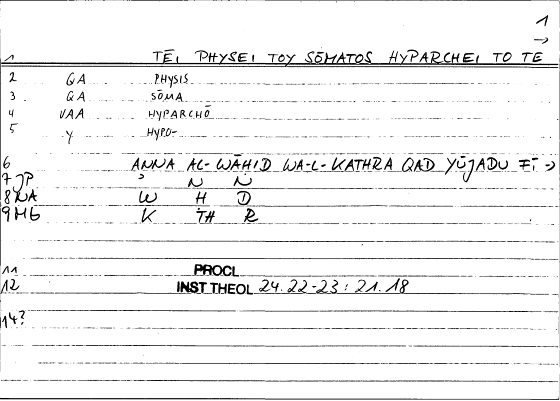 1
→
1 TĒI PHYSEI TOY SŌMATOS HYPARCHEI TO TE
2 QA PHYSIS
3 QA SŌMA
4 VAA HYPARCHŌ
5 Y HYPO-
6 ANNA AL-WĀHID WA-L-KATHRA QAD YŪJADU FĪ →
7 JP ʾ N N
8 NA W H D
9 Mb K TH R
11 PROCL
12 INST THEOL 24.22-23 : 21.18
14?